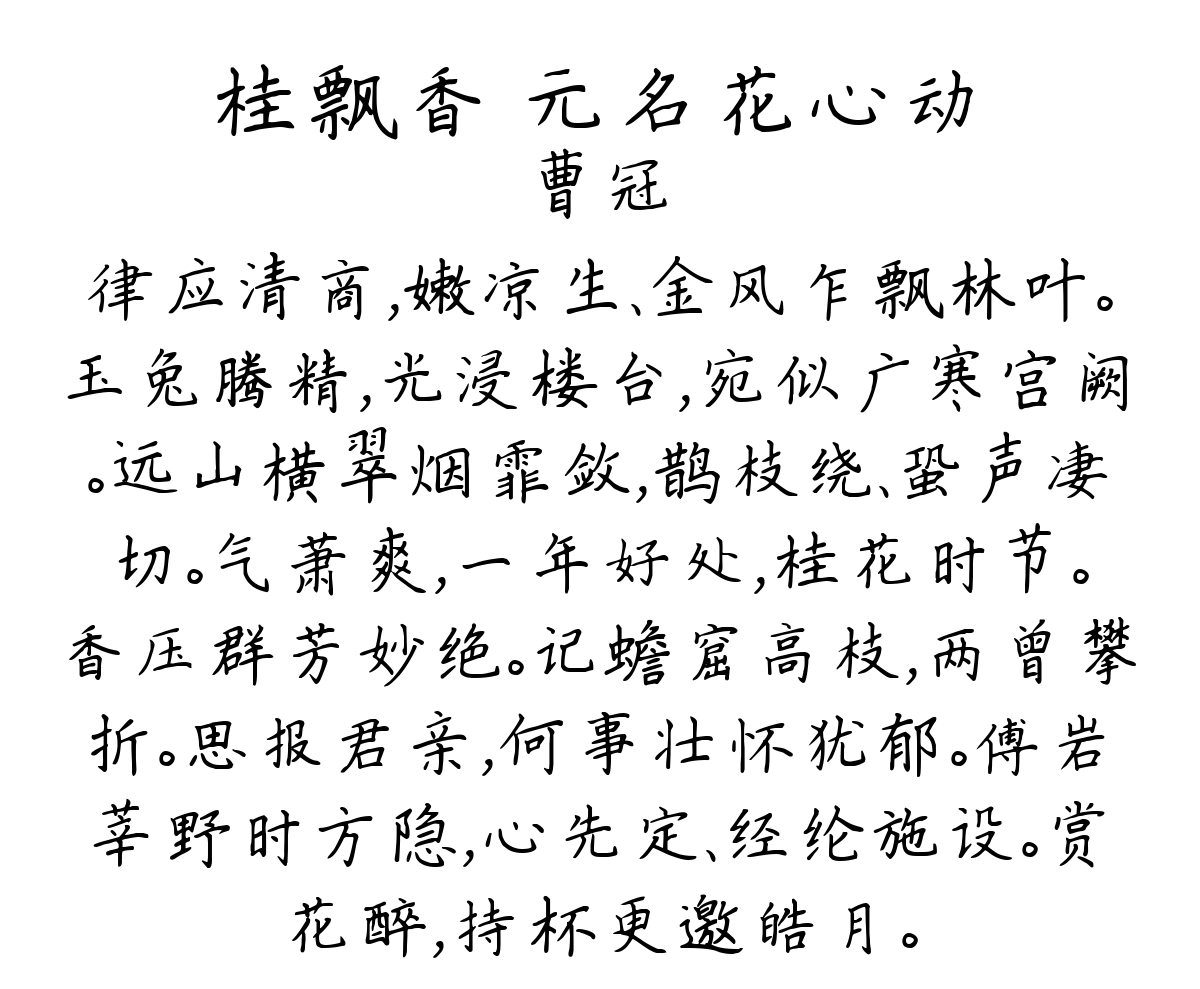 桂飘香 元名花心动
曹冠
律应清商,嫩凉生、金风乍飘林叶。
玉兔腾精,光浸楼台,宛似广寒宫阙
。远山横翠烟霏敛,鹊枝绕、蛩声凄
切。气萧爽,一年好处,桂花时节。
香压群芳妙绝。记蟾窟高枝,两曾攀
折。思报君亲,何事壮怀犹郁。傅岩
莘野时方隐,心先定、经纶施设。赏
花醉,持杯更邀皓月。